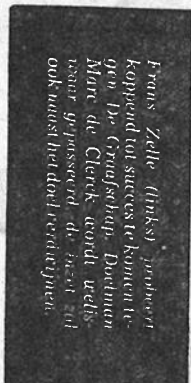 Frans Zelle (links) probeert
koppend tot succes te komen te-
gen De Graafschap. Doelman
Marc de Clerck wordt welis-
waar gepasseerd, de inzet zal
ook naast het doel verdwijnen.